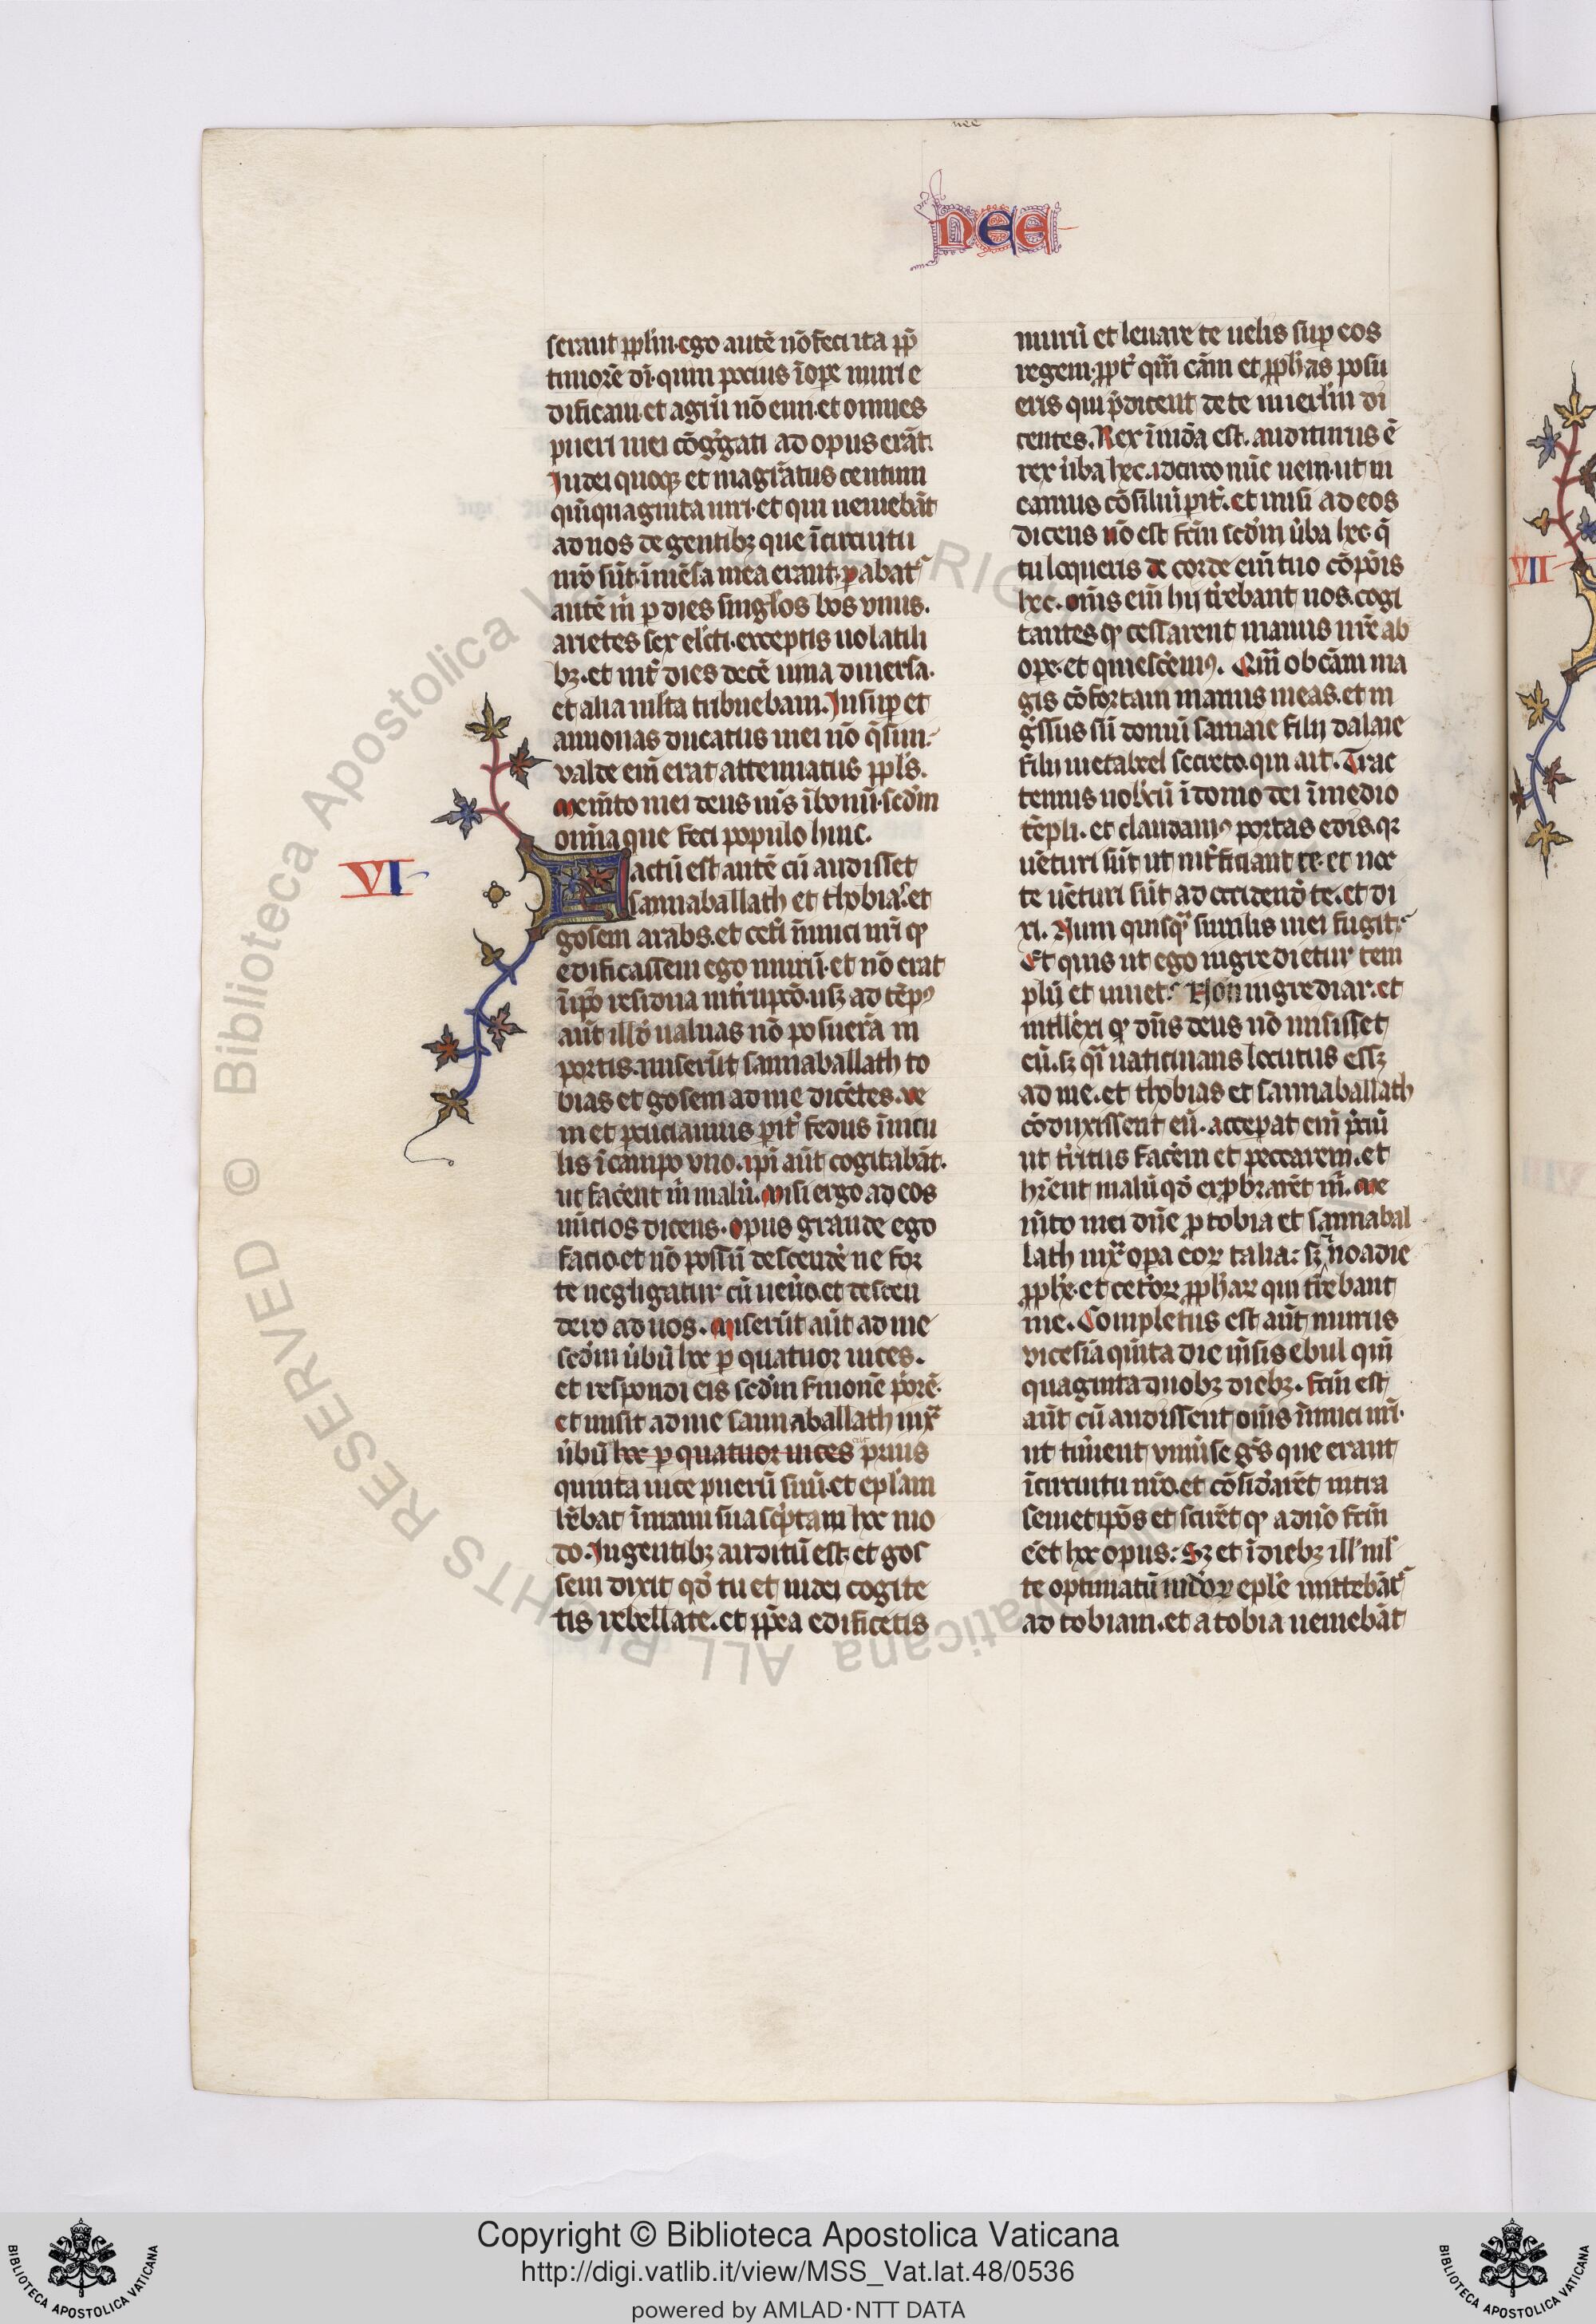 nee
NEE
serant pplm. ego autē nō feci ita pp̄
timorē dī. quin pocius ī ope muri e
dificaui. et agrū nō emi. et omnes
pueri mei cōggati ad opus erāt.
Iudei quoq; et magr̄atus centum
quīquaginta uiri. et qui ueniebāt
ad nos de gentibȝ que ī circuitu
nr̄o sūt. ī mēsa mea erant. parabat᷑
autē m̄ p dies singl'os bos vnus.
arietes sex elc̄ti. exceptis uolatili
bȝ. et int᷑ dies decē uina diuersa.
et alia multa tribuebam. Insup et
annonas ducatus mei nō q̄siui.
valde em̄ erat attenuatus ppl's.
Memto mei deus m̄s ī bonū. scdm
om̄ia que feci populo huic.
VI
Factū est autē cū audisset
sannaballath et thobias. et
gosem arabs. et cet̄i īimici nr̄i qͥ
edificassem ego murū. et nō erat
ī ipō residua int̄rupcō. usȝ ad tēpꝰ
aūt illō ualuas nō posuerā in
portis. miserūt sannaballath to
bias et gosem ad me dicētes. ve
ni et pcuciamus pit᷑ fedus ī uicu
lis ī campo vno. ipī aūt cogitabāt.
ut facēnt m̄ malū. Misi ergo ad eos
nūcios dicens. opus grande ego
facio. et nō possū descendē ne for
te negligatur cū uen̄o. et descen
dero ad uos. Miserūt aūt ad me
scdm ūbū hoc p quatuor uices.
et respondi eis scdm smonē p̄orē.
et misit ad me sannaballath iux͛
ūbū hoc p quatuor uices prius
quinta uice puerū suū. et epl'am
hēbat ī manu sua sc̄ptam hoc mo
do. In gentibȝ auditū est. et gos
sem dixit qd̄ tu et iudei cogite
tis rebellare. et pp̄ea edificetis
murū et leuare te uelis sup eos
regem. ppt̄ qm̄ cām et pphas posu
eris qui p̄dicent de te in ierl'm di
centes. Rex ī iudā est. auditurus ē
rex ūba hec. idcirco nūc ueni. ut in
eamus cōsiliū pit᷑. et misi ad eos
dicens nō est fc̄m scdm ūba hec. q̄
tu loqueris de corde em̄ tuo cōpōis
hec. om̄s em̄ hij t̄rebant nos. cogi
tantes qͥ cessarent manus nr̄e ab
ope. et quiescēmꝰ. Qm̄ ob cām ma
gis cōfortaui manus meas. et in
gssus sū domū samaie filij dalaie
filij metabeel secreto. qui ait. Trac
temus nobcū ī domo dei ī medio
tēpli. et claudamꝰ portas edis. qꝛ
uēturi sūt ut int̄ficiant te. et noc
te uēturi sūt ad occidendū te. et di
xi. Num quisq͛ similis mei fugit.
Et quis ut ego ingredietur tem
plū et uiuet. Non ingrediar. et
intllexi qͥ dn̄s deus nō misisset
eū. sȝ q͛i uaticinans locutus essȝ
ad me. et thobias et sannaballath
cōduxissent eū. acceperat em̄ p̄ciū
ut t̄ritus facēm et peccarem. et
hrēnt malū qd̄ exprobrarēt m̄. Me
mto mei dn̄e p tobia et sannabal
lath iux͛ opa eoꝝ talia. sȝ noadie
pphē. et cet̄oꝝ pphaꝝ qui t̄rebant
me. Completus est aūt murus
vicesia quīta die m̄sis ebul qui͛
quaginta duobȝ diebȝ. fc̄m est
aūt cū audissent om̄s īimici nr̄i.
ut tim̄ent vniūse gs̄ que erant
ī circuitu nr̄o. et cōsidarēt intra
semetipōs et scirēt qͥ a dn̄o fc̄m
eēt hoc opus. Sȝ et ī diebȝ ill' ml'
te optimatū iudeoꝝ eplē mittebāt᷑
ad tobiam. et a tobia ueniebāt
VII
Copyright © Biblioteca Apostolica Vaticana
http://digi.vatlib.it/view/MSS_Vat.lat.48/0536
powered by AMLAD·NTT DATA
BIBLIOTECA APOSTOLICA VATICANA
BIBLIOTECA APOSTOLICA VATICANA
© Biblioteca Apostolica Vaticana ALL RIGHTS RESERVED